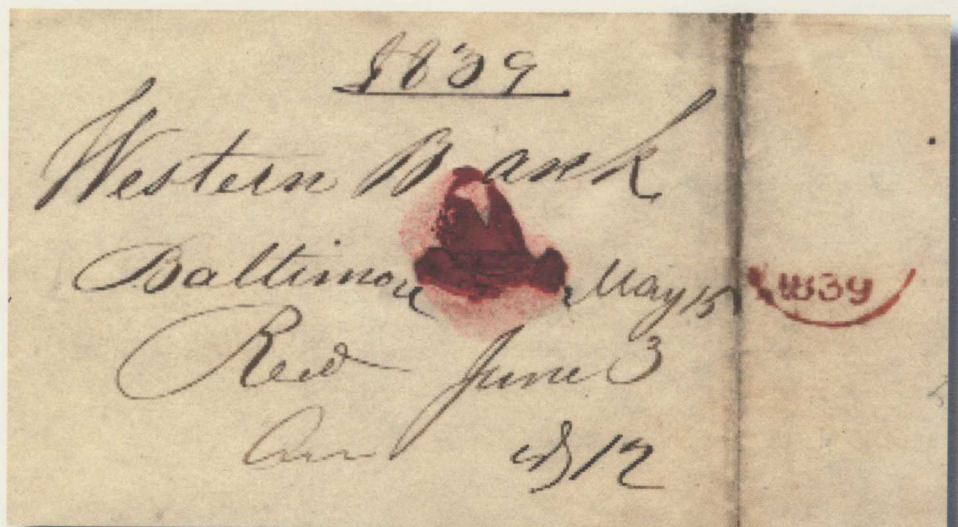 1839
Western Bank
Baltimore May 15
1839
Recd June 3
Ans do 12